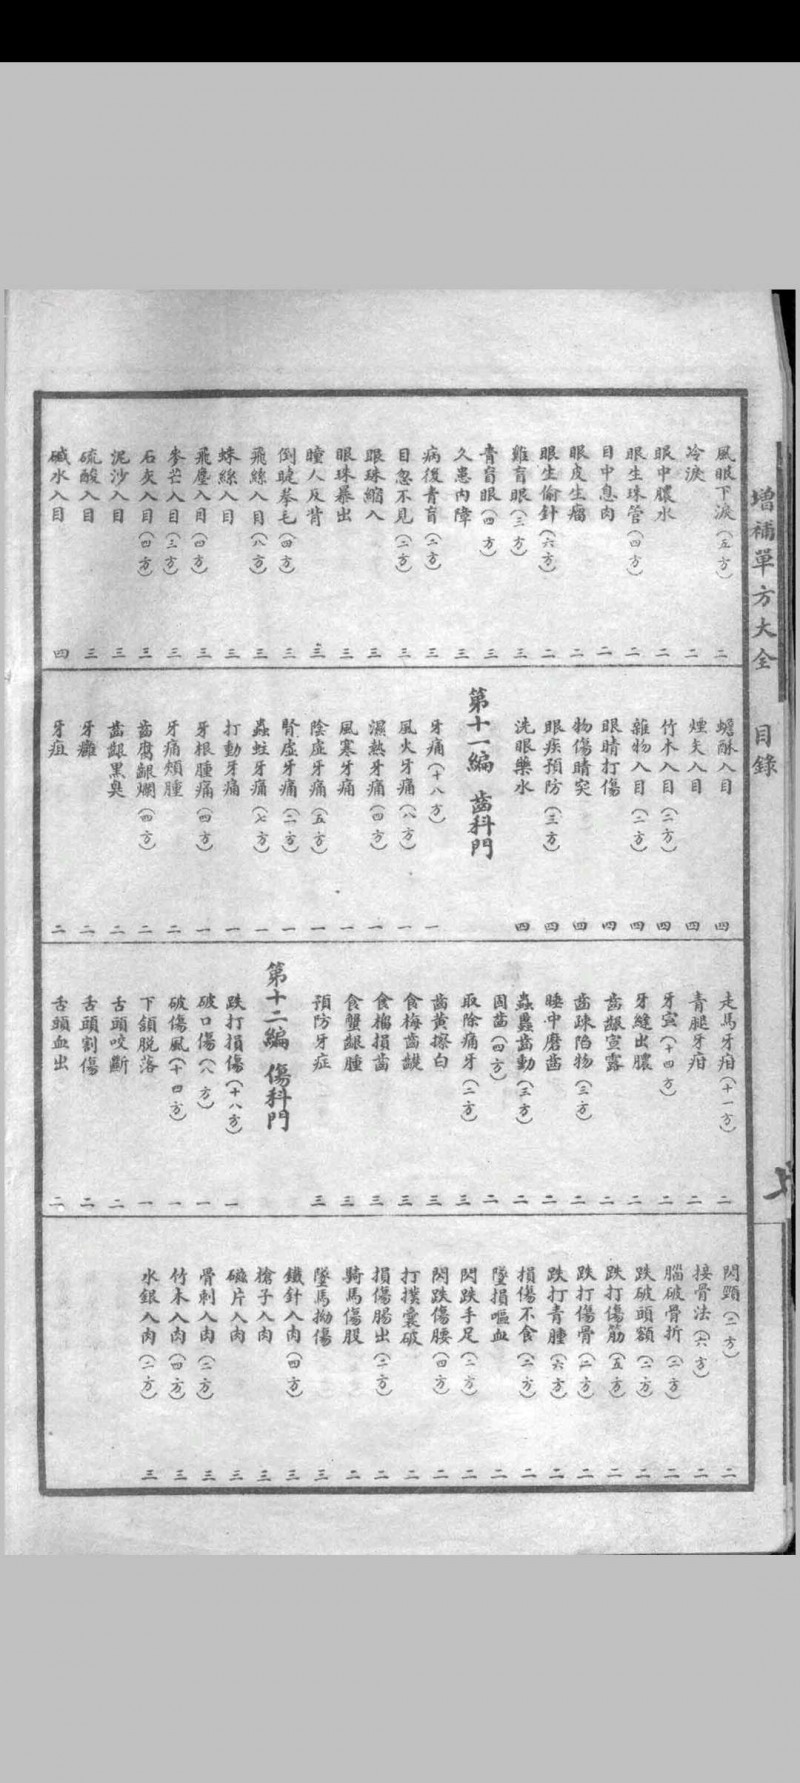 增補單方大全　目錄
風眼下淚(五方)　二
冷淚　二
眼中膿水　二
眼生珠管(四方)　二
目中息肉　二
眼皮生瘤　二
眼生偷針(六方)　二
雞盲眼(三方)　三
青盲眼(四方)　三
久患內障　三
病後青盲(二方)　三
目忽不見(二方)　三
眼珠縮入　三
眼珠暴出　三
瞳人反背　三
倒睫拳毛(四方)　三
飛絲入目(八方)　三
蛛絲入目　三
飛塵入目(四方)　三
麥芒入目(三方)　三
石灰入目(四方)　三
泥沙入目　三
硫酸入目　三
碱水入目　四
蟾酥入目　四
煙灰入目　四
竹木入目(二方)　四
雜物入目(二方)　四
眼睛打傷　四
物傷睛突　四
眼疾預防(三方)　四
洗眼藥水　四
第十一編　齒科門
牙痛(十八方)　一
風火牙痛(八方)　一
濕熱牙痛(四方)　一
風寒牙痛　一
陰虛牙痛(五方)　一
腎虛牙痛(二方)　一
蟲蛀牙痛(七方)　一
打動牙痛　一
牙根腫痛(四方)　一
牙痛頰腫　二
齒腐齦爛(四方)　二
齒齦黑臭　二
牙癰　二
牙疽　二
走馬牙疳(十一方)　二
青腿牙疳　二
牙宣(十四方)　二
牙縫出膿　二
齒齦宣露　二
齒疎陷物(三方)　二
睡中磨齒　二
蟲䘌齒動(三方)　二
固齒(四方)　二
取除痛牙(二方)　三
齒黃擦白　三
食梅齒齼　三
食榴損齒　三
食蟹齦腫　三
預防牙症　三
第十二編　傷科門
跌打損傷(十八方)　一
破口傷(八方)　一
破傷風(十四方)　一
下頷脫落　一
舌頭咬斷　二
舌頭割傷　二
舌頭血出　二
閃頸(二方)　二
接骨法(六方)　二
腦破骨折(二方)　二
跌破頭額(二方)　二
跌打傷筋(五方)　二
跌打傷骨(二方)　二
跌打青腫(六方)　二
損傷不食(二方)　二
墜損嘔血　二
閃跌手足(二方)　二
閃跌傷腰(四方)　二
打撲囊破　二
損傷腸出(二方)　二
騎馬傷股　二
墜馬拗傷　三
鐵針入肉(四方)　三
槍子入肉　三
磁片入肉　三
骨刺入肉(二方)　三
竹木入肉(四方)　三
水銀入肉(二方)　三